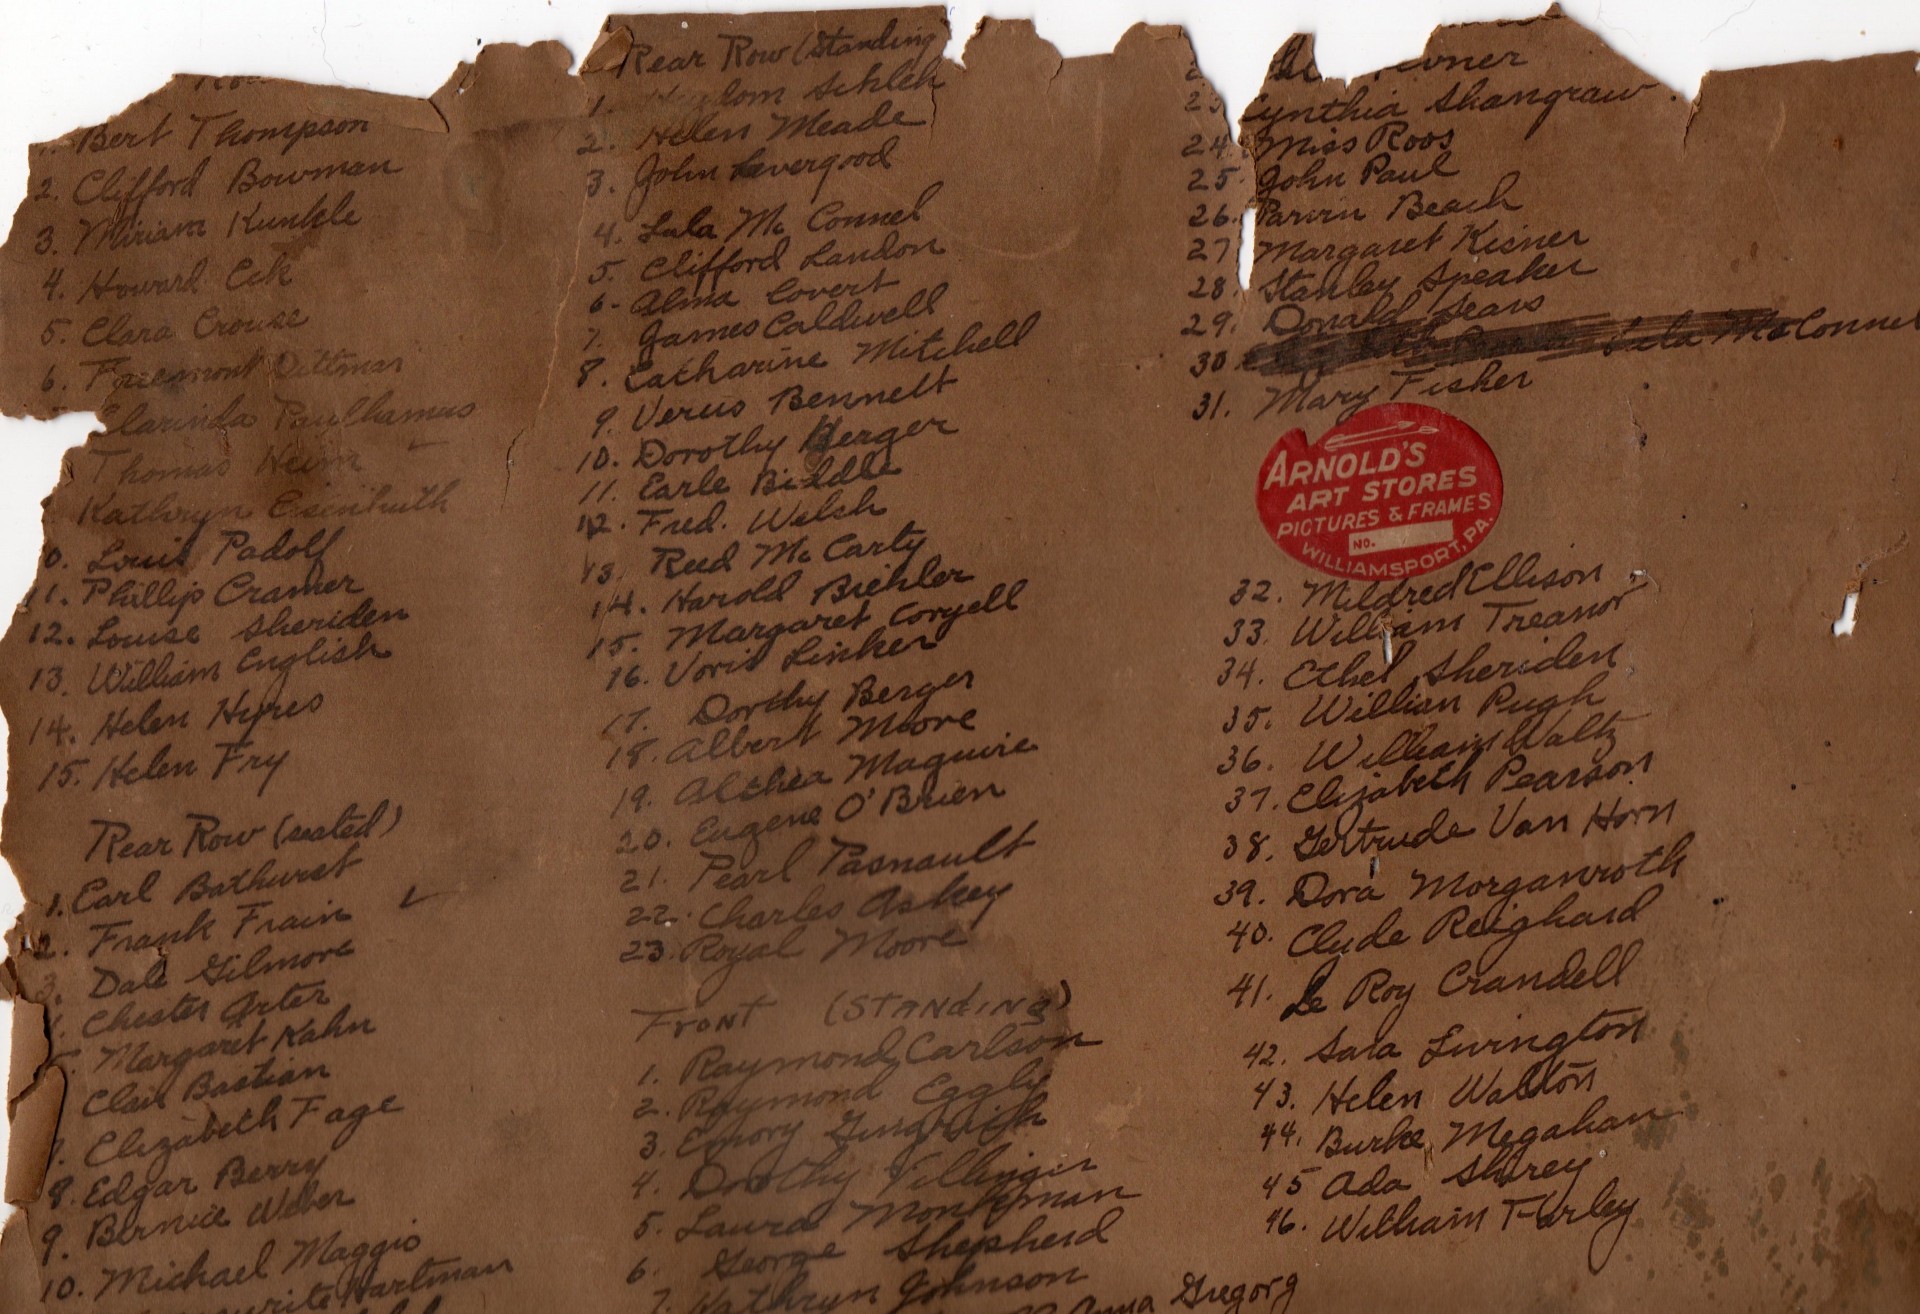 1. Bert Thompson
2. Clifford Bowman
3. Miriam Kunkle
4. Howard Eck
5. Clara Crouse
6. Freemont Dittmar
Clarinda Paulhamus
Thomas Heim
Kathryn Eisenhuth
0. Louis Padolf
11. Phillip Cramer
12. Louise Sheriden
13. William English
14. Helen Hyres
15. Helen Fry
Rear Row (seated)
1. Earl Bathurst
2. Frank Frain
3. Dale Gilmore
Chester Arter
Margaret Kahn
Clair Bastian
7. Elizabeth Fage
8. Edgar Berry
9. Bernice Weber
10. Michael Maggio
Hartman
Rear Row (Standing
1. Schleh
2. Helen Meade
3. John Levergood
4. Lula Mc Connel
5. Clifford Landon
6. Alma Covert
7. James Caldwell
8. Catharine Mitchell
9. Verus Bennett
10. Dorothy Berger
11. Earle Biddle
12. Fred. Welsh
13. Reed Mc Carty
14. Harold Biehler
15. Margaret Coryell
16. Voris Linker
17. Dorthy Berger
18. Albert Moore
19. Althea Maguire
20. Eugene O'Brien
21. Pearl Pasnault
22. Charles Askey
23. Royal Moore
FRONT (STANDING)
1. Raymond Carlson
2. Raymond Eggly
3. Emory Gingrich
4. Dorothy Villinger
5. Laura Monteman
6. George Shepherd
7. Kathryn Johnson
Anna Gregorg
23 Cynthia Shangraw
24. Miss Roos
25. John Paul
26. Parvin Beach
27 Margaret Kisner
28. Stanley Speaker
29. Donald Sears
30 Lila McConnel
31. Mary Fisher
ARNOLD'S
ART STORES
PICTURES & FRAMES
NO.
WILLIAMSPORT, PA.
32. Mildred Ellison
33. William Treanor
34. Ethel Sheriden
35. William Pugh
36. William Waltz
37. Elizabeth Pearson
38. Gertrude Van Horn
39. Dora Morganroth
40. Clude Reighard
41. Le Roy Crandell
42. Sara Livington
43. Helen Walton
44. Burke Megahan
45 Ada Shirey
46. William Farley